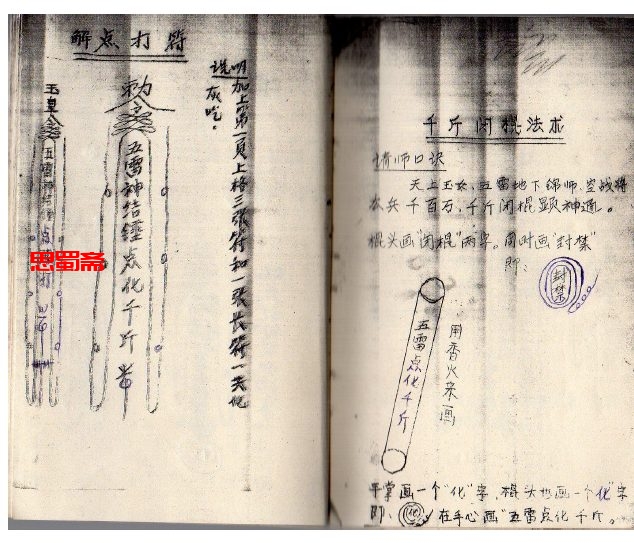 解点打符
说明
加上第一頁上格三张符和一张长符一共化
灰吃。
勅令
五雷神结錘点化千斤
玉皇
五雷神结錘点打
思蜀斋
千斤闭棍法术
请师口识
天上玉女，五雷地下绵师，空战将
本兵千百万，千斤闭棍显神通。
棍头画"闭棍"两字。同时画"封禁"
即：
封禁
五雷点化千斤
用香火来画
手掌画一个"化"字，棍头也画一个"化"字
即、化 在手心画"五雷点化千斤。